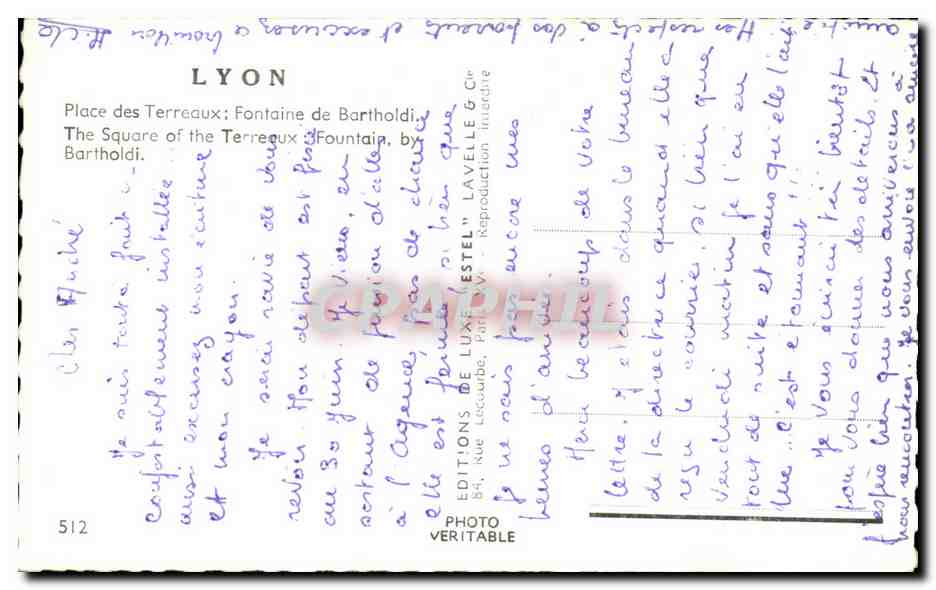 LYON
Place des Terreaux; Fontaine de Bartholdi.
The Square of the Terreaux; Fountain, by
Bartholdi.
512
PHOTO
VERITABLE
EDITIONS DE LUXE "ESTEL" LAVELLE & Cie
84, Rue Lecourbe, Paris Reproduction interdite
CPAPHIL
Cher André
Je suis tout a fait
confortablement installée
aussi excusez mon écriture
et mon crayon.
Je serai ravie de vous
revoir. Mon départ est fixé
au 30 Juin. Je viens, en
sortant de pension d'aller
à l'agence. Pas de chance
elle est fermée si bien que
je ne sais pas encore mes
heures d'arrivée
Merci beaucoup de votre
lettre. J'étais dans le bureau
de la directrice quand elle a
reçu le courrier si bien que
vendredi matin je l'ai eu
tout de suite et sans qu'elle l'ait
lue... c'est étonnant!!!
Je vous écrirai très bientôt
pour vous donner des détails. Et
j'espère bien que nous arriverons à
nous rencontrer. Je vous envoie encore
amitié
Mes respects à vos parents et excusez ce brouillon